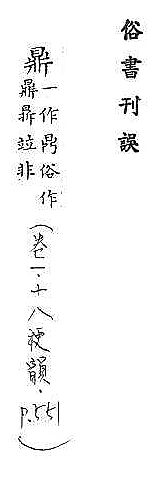 俗書刊誤
鼎一作𣇓俗作
鼎鼑竝非
(卷一.十八梗韻.
p.551)